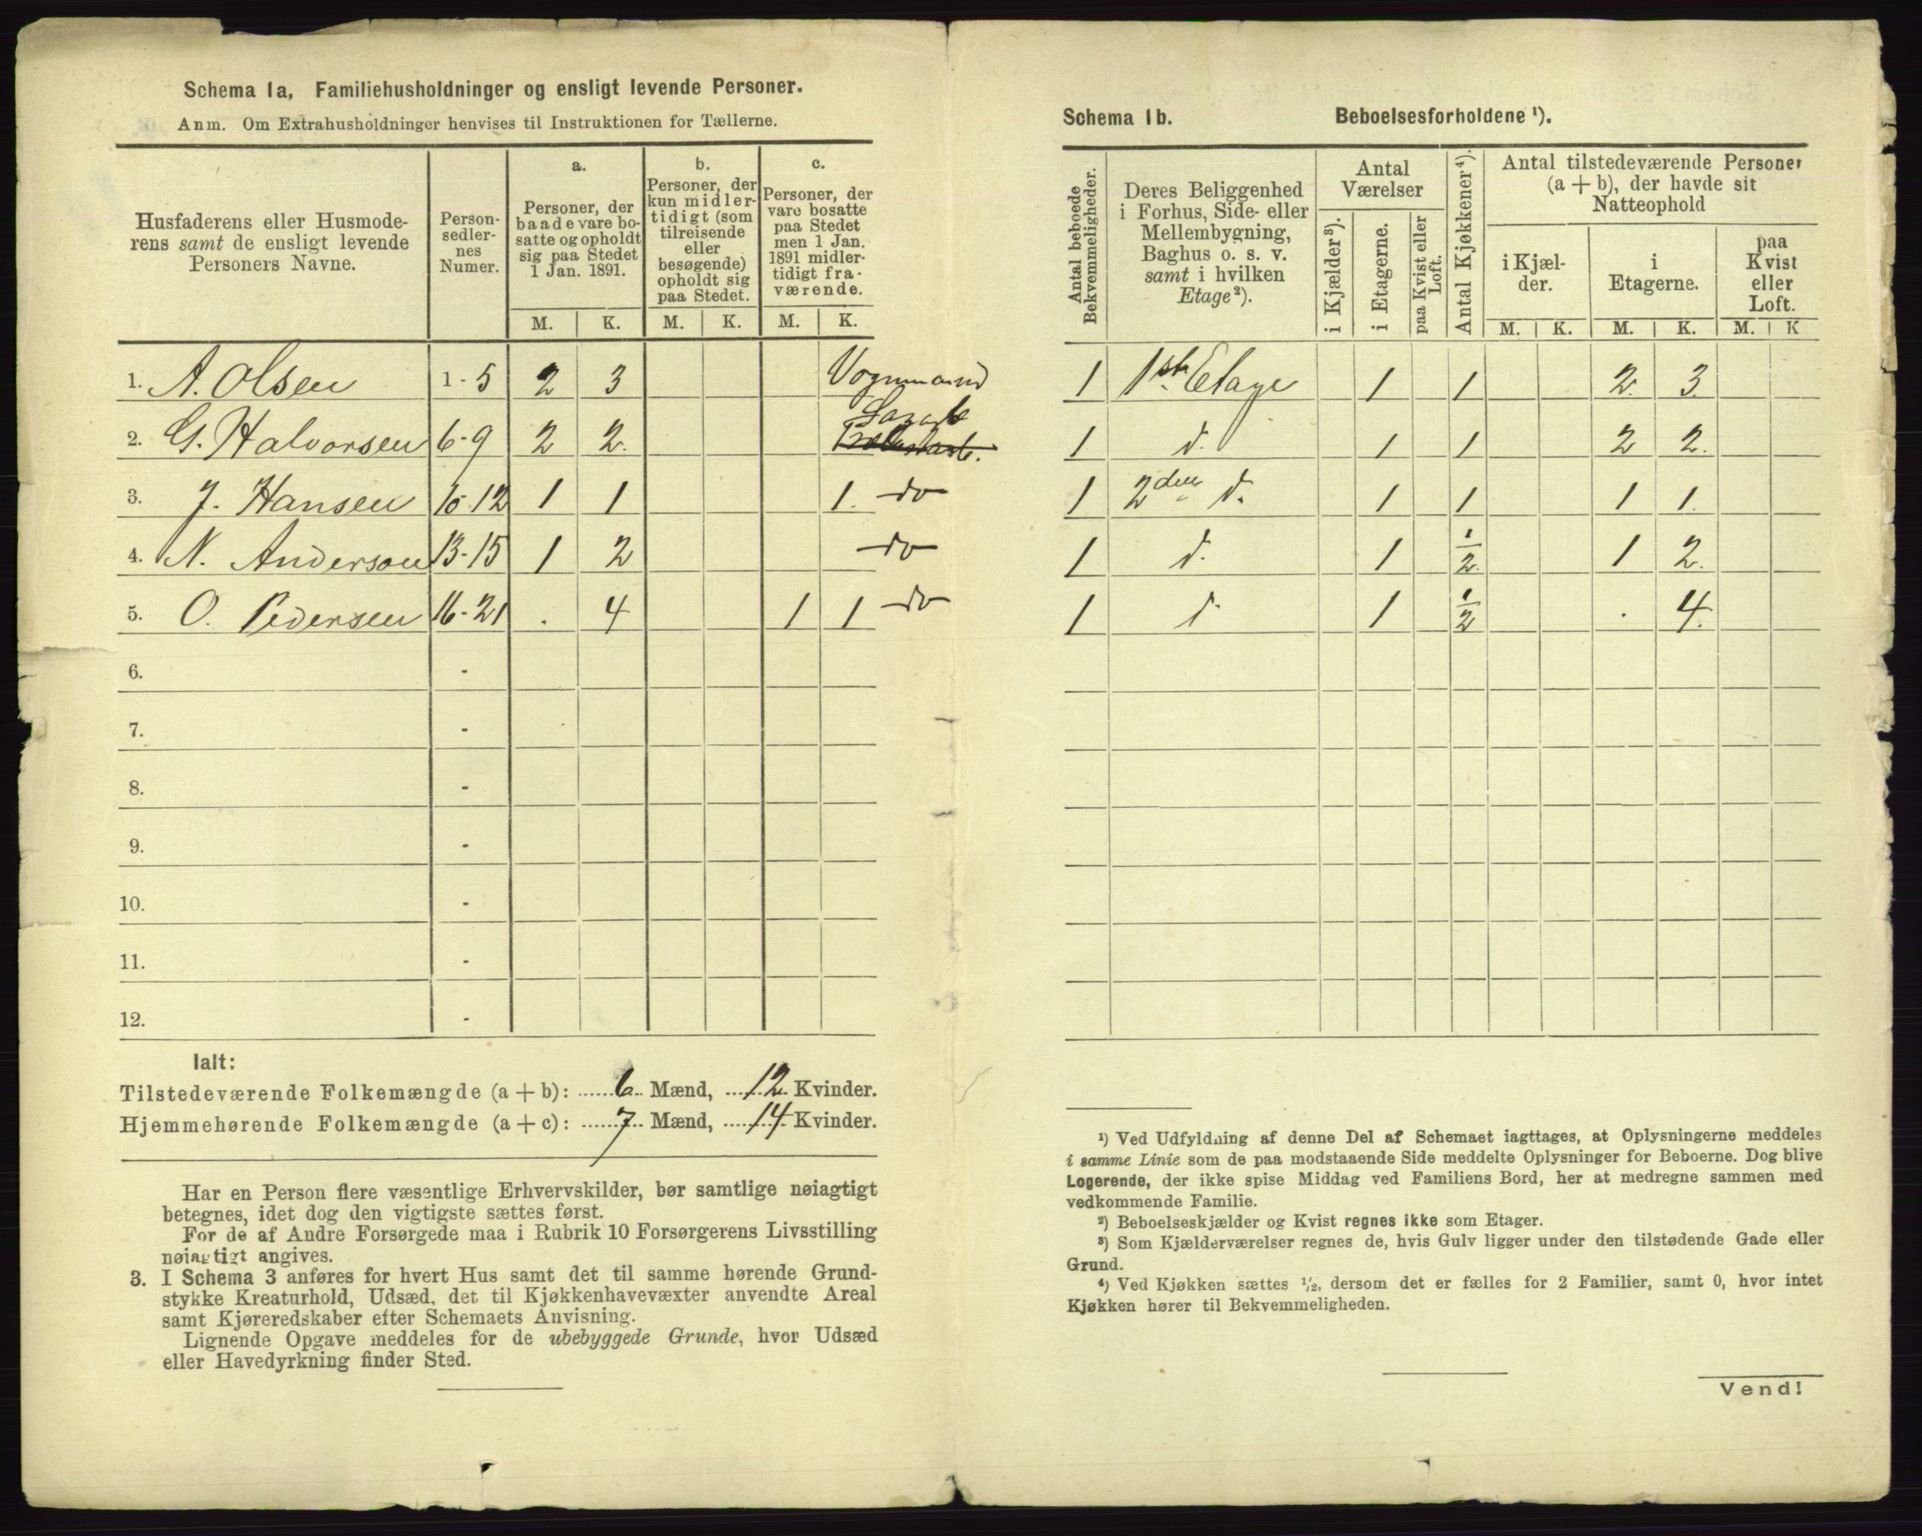 Schema 1a, Familiehusholdninger og ensligt levende Personer.
Anm. Om Extrahusholdninger henvises til Instruktionen for Tællerne.
Husfaderens eller Husmode-
rens samt de ensligt levende
Personers Navne.
Person-
sedler-
nes
Numer.
a.
Personer, der
baade vare bo-
satte og opholdt
sig paa Stedet
1 Jan. 1891.
b.
Personer, der
kun midler-
tidigt (som
tilreisende
eller
besøgende)
opholdt sig
paa Stedet.
c.
Personer, der
vare bosatte
paa Stedet
men 1 Jan.
1891 midler-
tidigt fra-
værende.
M. K. M. K. M. K.
1. A. Olsen 1-5 2 3 Vognmand
2. G. Halvorsen 6-9 2 2.
3. J. Hansen 10-12 1 1 1. do
4. N. Anderson 13-15 1 2 do
5. O. Pedersen 16-21 . 4 1 1 do
6. -
7. -
8. -
9. -
10. -
11. -
12. -
Ialt:
Tilstedeværende Folkemængde (a + b): 6 Mænd, 12 Kvinder.
Hjemmehørende Folkemængde (a + c): 7 Mænd, 14 Kvinder.
Har en Person flere væsentlige Erhvervskilder, bør samtlige nøiagtigt
betegnes, idet dog den vigtigste sættes først.
For de af Andre Forsørgede maa i Rubrik 10 Forsørgerens Livsstilling
nøiagtigt angives.
3. I Schema 3 anføres for hvert Hus samt det til samme hørende Grund-
stykke Kreaturhold, Udsæd, det til Kjøkkenhavevæxter anvendte Areal
samt Kjøreredskaber efter Schemaets Anvisning.
Lignende Opgave meddeles for de ubebyggede Grunde, hvor Udsæd
eller Havedyrkning finder Sted.
Schema 1b. Beboelsesforholdene ¹).
Antal beboede
Bekvemmeligheder.
Deres Beliggenhed
i Forhus, Side- eller
Mellembygning,
Baghus o. s. v.
samt i hvilken
Etage²).
Antal
Værelser
i Kjælder³).
i Etagerne.
paa Kvist eller
Loft.
Antal Kjøkkener⁴).
Antal tilstedeværende Personer
(a + b), der havde sit
Natteophold
i Kjæl-
der.
i
Etagerne.
paa
Kvist
eller
Loft.
M. K. M. K. M. K
1 1ste Etage 1 1 2. 3.
1 d. 1 1 2 2.
1 2den d. 1 1 1 1.
1 d. 1 1/2. 1 2.
1 d 1 1/2 . 4.
¹) Ved Udfyldning af denne Del af Schemaet iagttages, at Oplysningerne meddeles
i samme Linie som de paa modstaaende Side meddelte Oplysninger for Beboerne. Dog blive
Logerende, der ikke spise Middag ved Familiens Bord, her at medregne sammen med
vedkommende Familie.
²) Beboelseskjælder og Kvist regnes ikke som Etager.
³) Som Kjælderværelser regnes de, hvis Gulv ligger under den tilstødende Gade eller
Grund.
⁴) Ved Kjøkken sættes ½, dersom det er fælles for 2 Familier, samt 0, hvor intet
Kjøkken hører til Bekvemmeligheden.
Vend!